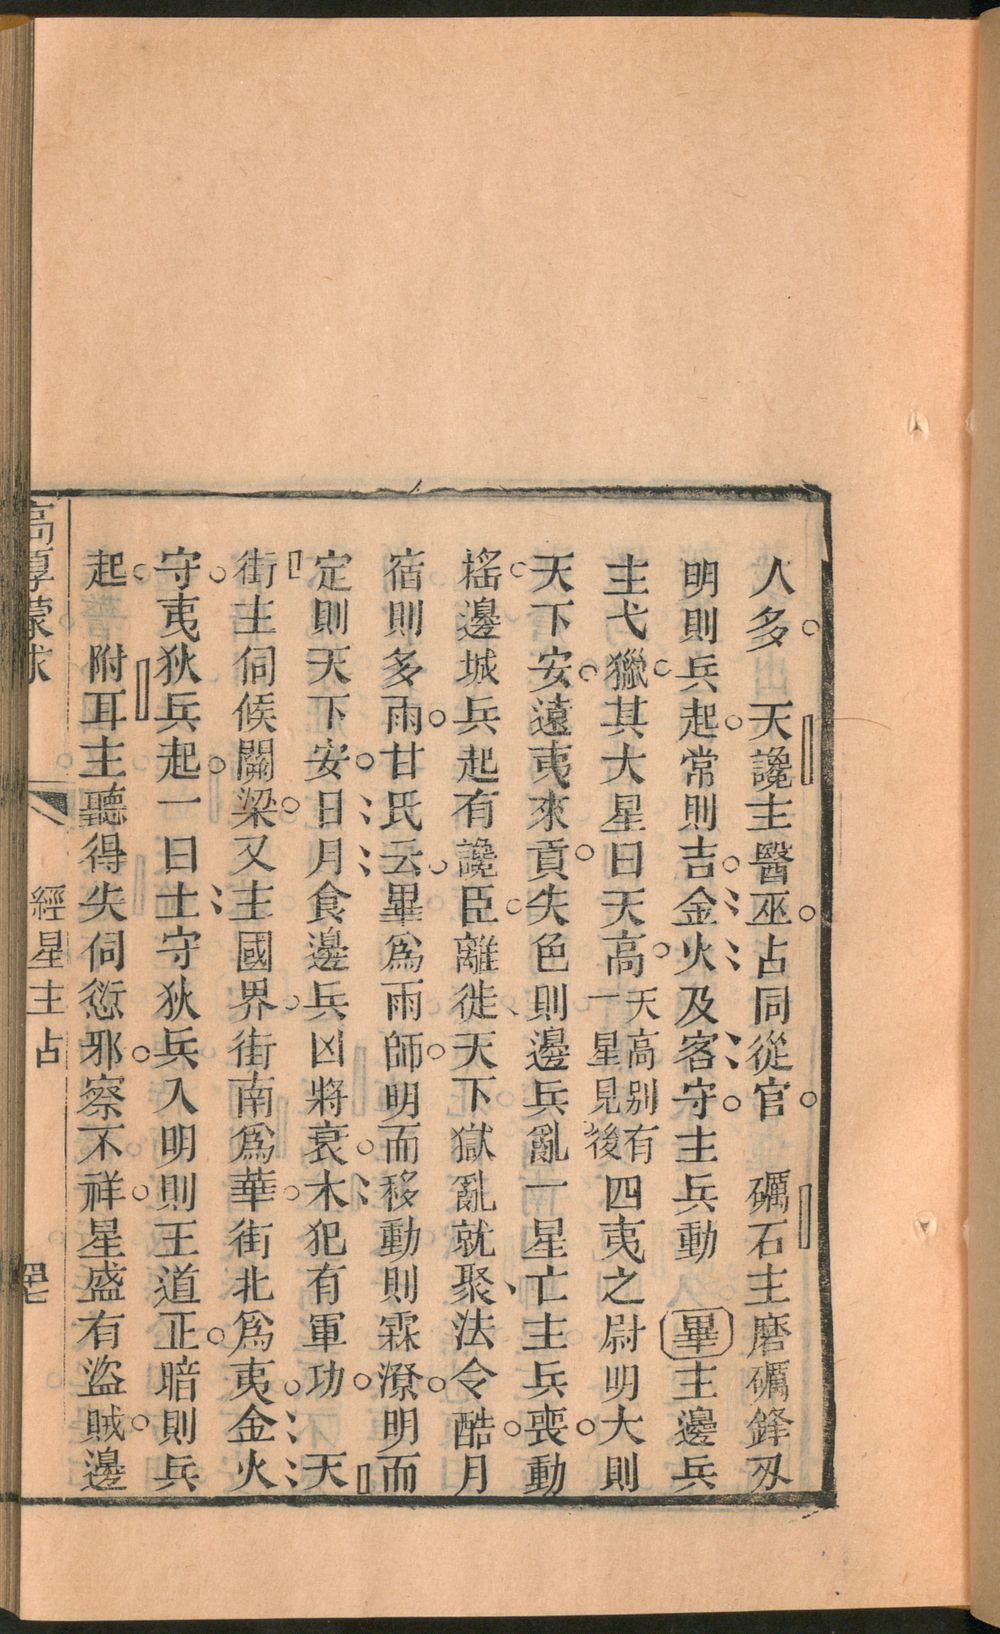 人多　天讒主醫巫占同從官　礪石主磨礪鋒刄
明則兵起常則吉金火及客守主兵動　畢主邊兵
主弋獵其大星曰天高天高别有一星見後四夷之尉明大則
天下安遠夷來貢失色則邊兵亂一星亡主兵喪動
搖邊城兵起有讒臣離徙天下獄亂就聚法令酷月
宿則多雨甘氏云畢爲雨師明而移動則霖潦明而
定則天下安日月食邊兵凶將衰木犯有軍功　天
街主伺候關梁又主國界街南爲華街北爲夷金火
守夷狄兵起一曰土守狄兵入明則王道正暗則兵
起　附耳主聽得失伺愆邪察不祥星盛有盜賊邊
高厚蒙求
經星主占